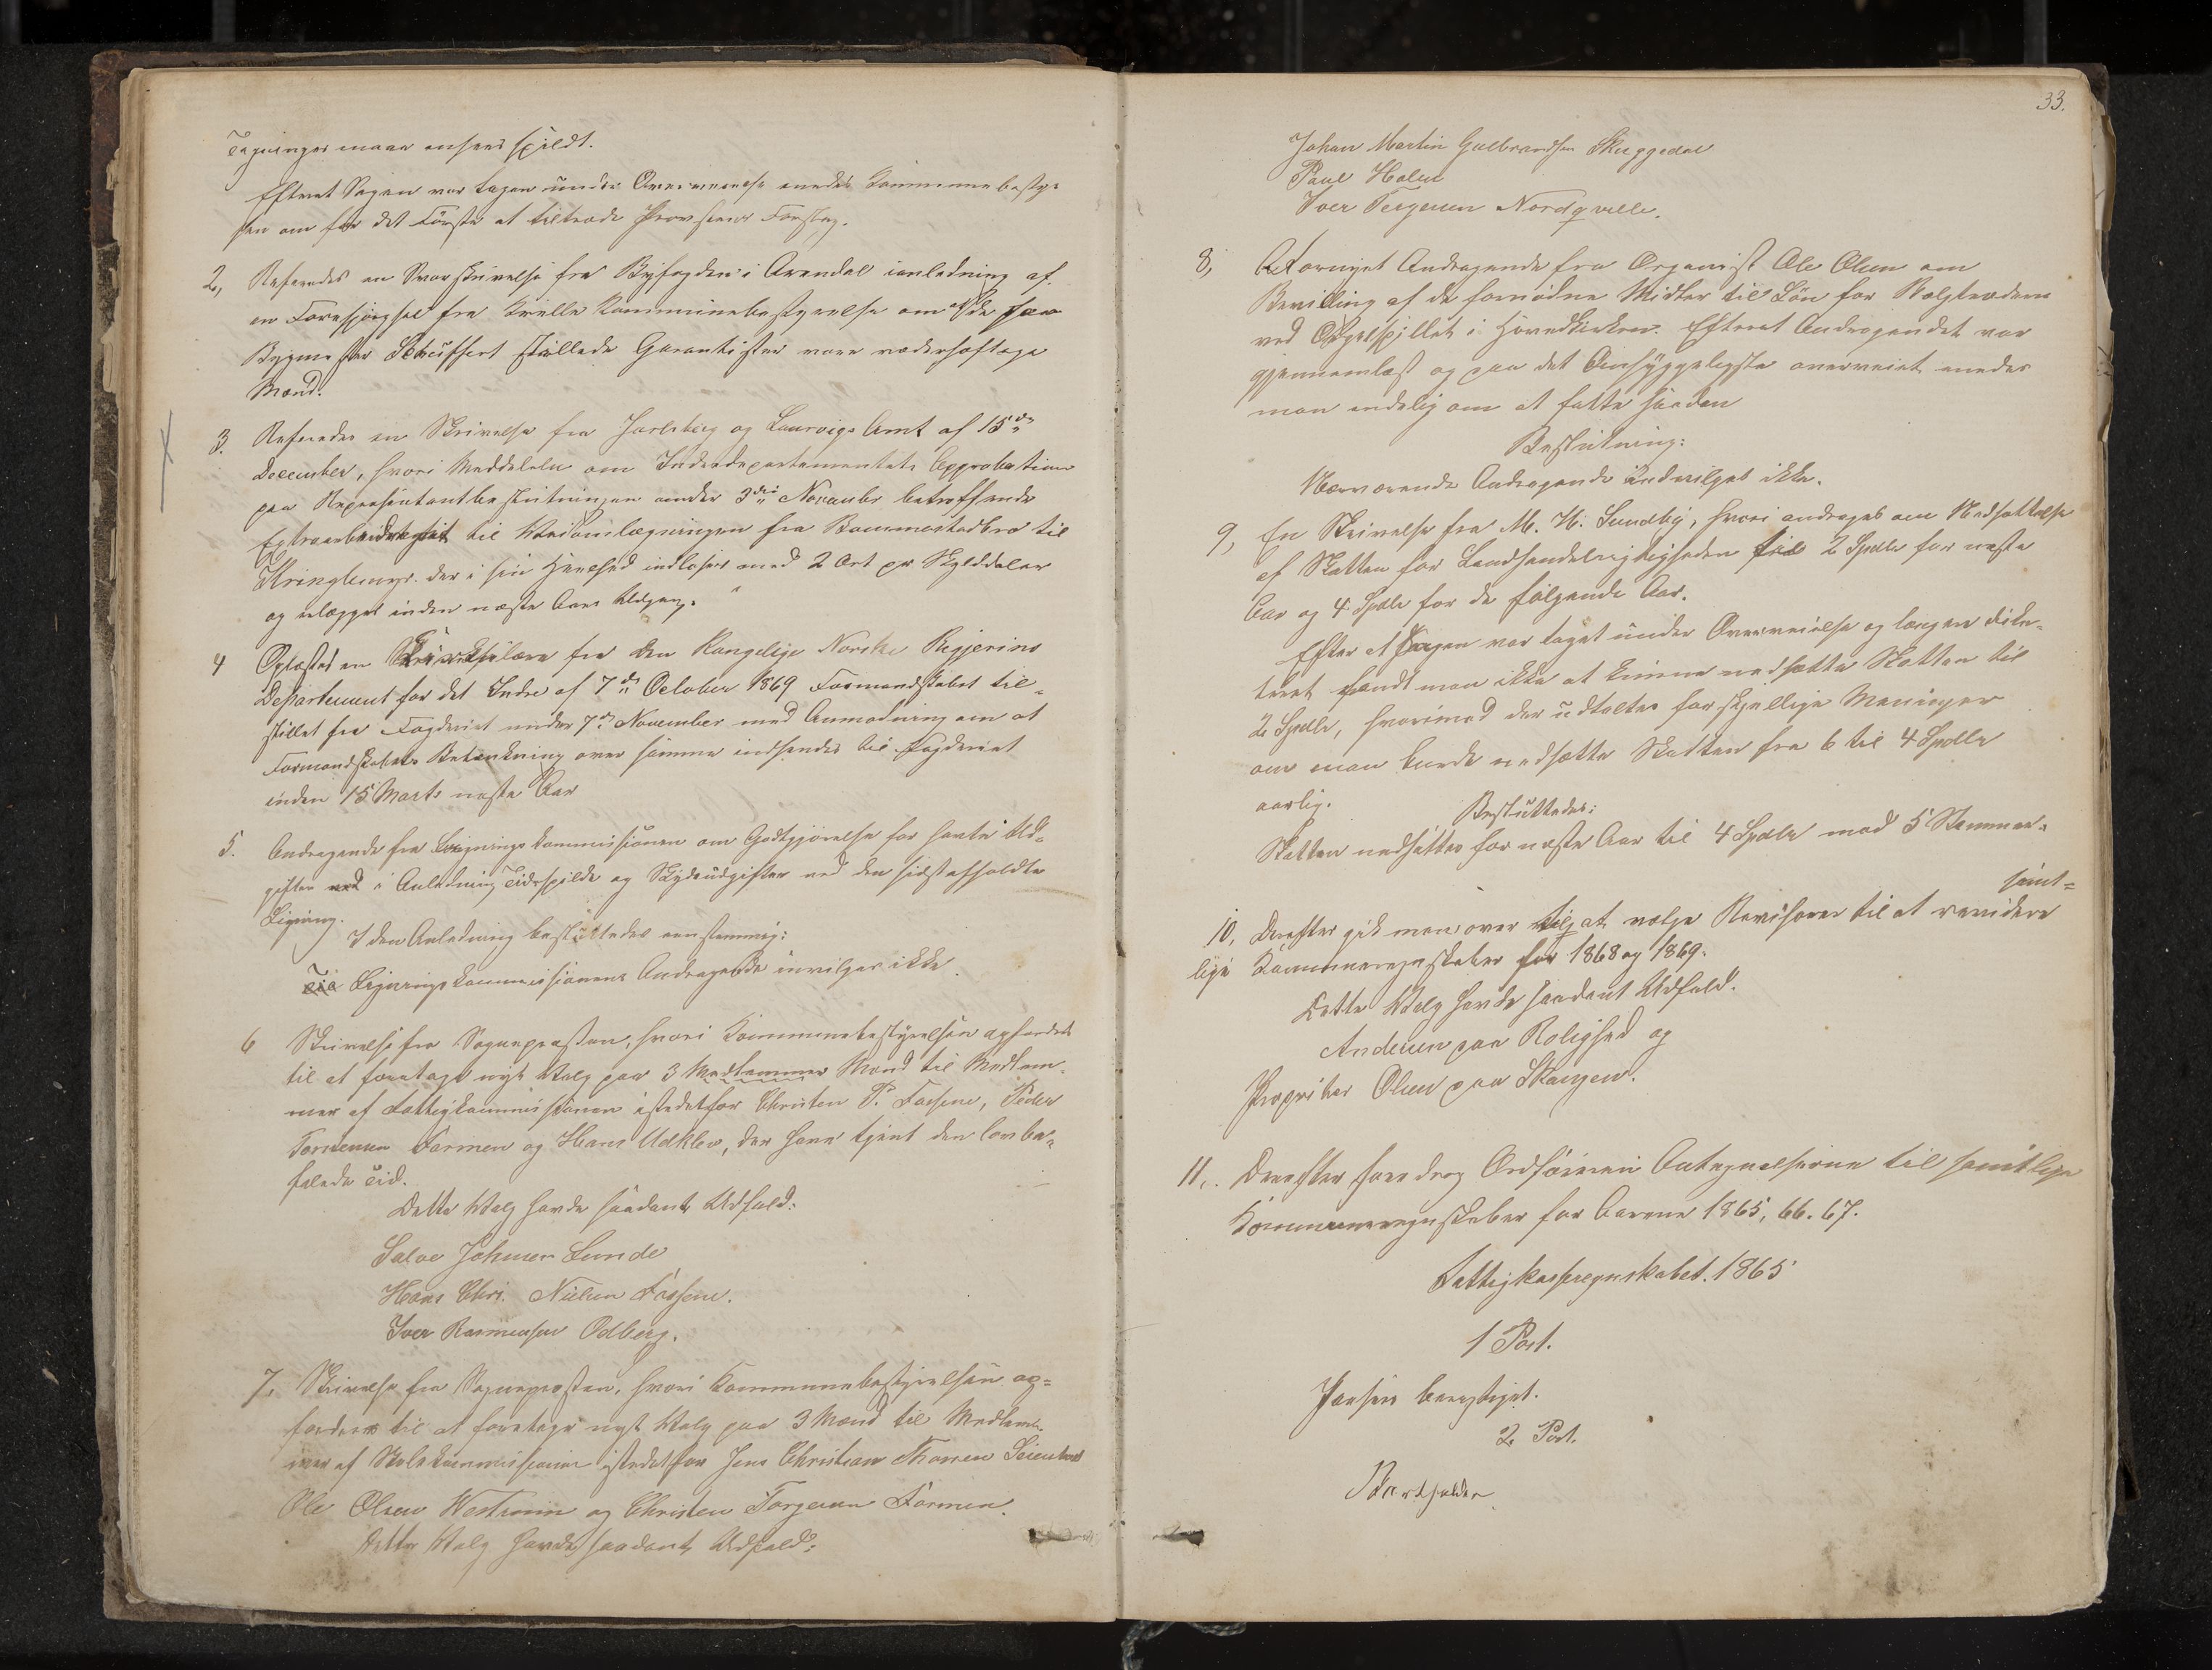 Tegninger maae ansees spildt.
Efterat Sagen var tagen under Overveielse enedes Kommunebesty-
sen om for det Første at tiltræde Provstens Forslag.
2, Refereredes en Svarskrivelse fra Byfogden i Arendal i anledning af
en Forespørgsel fra Brunla Kommunebestyrelse om de
Bygmester Schuffert stillede Garantister vare vederhæftige
Mænd.
3. Refereredes en Skrivelse fra Jarlsberg og Laurvigs Amt af 15de
December, hvori Meddeleles om Indredepartementets Approbation
paa Repræsentantbeslutningen under 3die November betræffende
Extraarbeidspligt til Veiomlægningen fra Bommestadbro til
Kringlemyr. der i sin Heelhed indløses med 2 Ort pr Skylddaler
og erlægges inden næste Aars Udgang.
4 Oplæstes en fra den Kongelige Norske Regjerins
Departement for det Indre af 7de October 1869 Formandskabet til-
stillet fra Fogderiet under 7de November med Anmodning om at
Formandskabets Betænkning over samme indsendes til Fogderiet
inden 15 Marts næste Aar
5. Andragende fra Ligningskommissionen om Godtgjørelse for havte Ud-
gifter ved i Anledning Tidsspilde og Skydsudgifter ved den sidst afholdte
Ligning.
I den Anledning besluttedes eenstemmig:
Ligningskommissionens Andragende invilges ikke.
6 Skrivelse fra Sognepræsten, hvori Kommunebestyrelsen opfordres
til at foretage nyt Valg paa 3 Medlemmer Mænd til Medlem-
mer af Fattigkommissionen istedetfor Christen P. Fossene, Peder
Torstensen Farmen og Hans Udklev, der have tjent den lovbe-
falede Tid.
Dette Valg havde saadant Udfald:
Salve Johnsen Lunde
Hans Chr. Nielsen Fossene.
Iver Rasmussen Odberg.
7, Skrivelse fra Sognepræsten, hvori Kommunebestyrelsen op-
fordres til at foretage nyt Valg paa 3 Mænd til Medlem-
mer af Skolekommissionen istedetfor Jens Christian Thorsen
Ole Olsen Westrum og Christen Torgersen Farmen.
Dette Valg havde saadant Udfald:
33.
Johan Martin Gulbrandsen Skuggedal
Paul Holm
Iver Torgersen Nordqvelle.
8, Fornyet Andragende fra Organist Ole Olsen om
Bevilling af de fornødne Midler til Løn for Bælgtræderen
ved Orgelspillet i Hovedkirken. Efterat Andragendet var
gjennemlæst og paa det Omhyggeligste overveiet enedes
man endelig om at fatte saadan
Beslutning:
Nærværende Andragende indvilges ikke.
9, En Skrivelse fra M. H. Lundby, hvori andrages om Nedsættelse
af Skatten for Landhandelrettigheden til 2 Spdlr for næste
Aar og 4 Spdlr for de følgende Aar.
Efter at Sagen var taget under Overveielse og længere disku-
teret fandt man ikke at kunne nedsætte Skatten til
2 Spdlr, hvorimod der udtaltes forskjellige Meninger
om man burde nedsætte Skatten fra 6 til 4 Spdlr
aarlig.
Besluttedes:
Skatten nedsættes for næste Aar til 4 Spdlr mod 5 Stemmer.
10, Derefter gik man over til at vælge Revisorer til at revidere samt-
lige Kommuneregnskaber for 1868 og 1869.
Dette Valg havde saadant Udfald:
Andersen paa Rolighed og
Proprietær Olsen paa Skaugen.
11,. Derefter foredrog Ordføreren Antegnelserne til samtlige
Kommuneregnskaber for Aarene 1865, 66. 67.
Fattigkasseregnskabet. 1865
1 Post.
2 Post.
Bortfalder